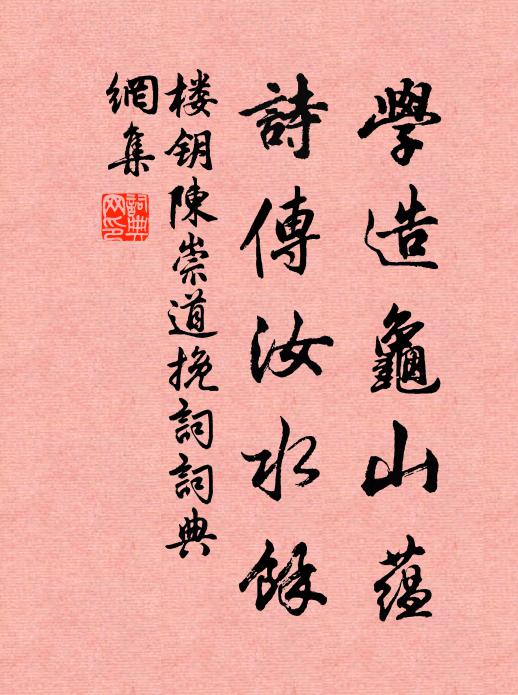 學造龜山蕴
詩傳汝水餘
楼钥陳崇道挽詞詞典
網集
詞典網印